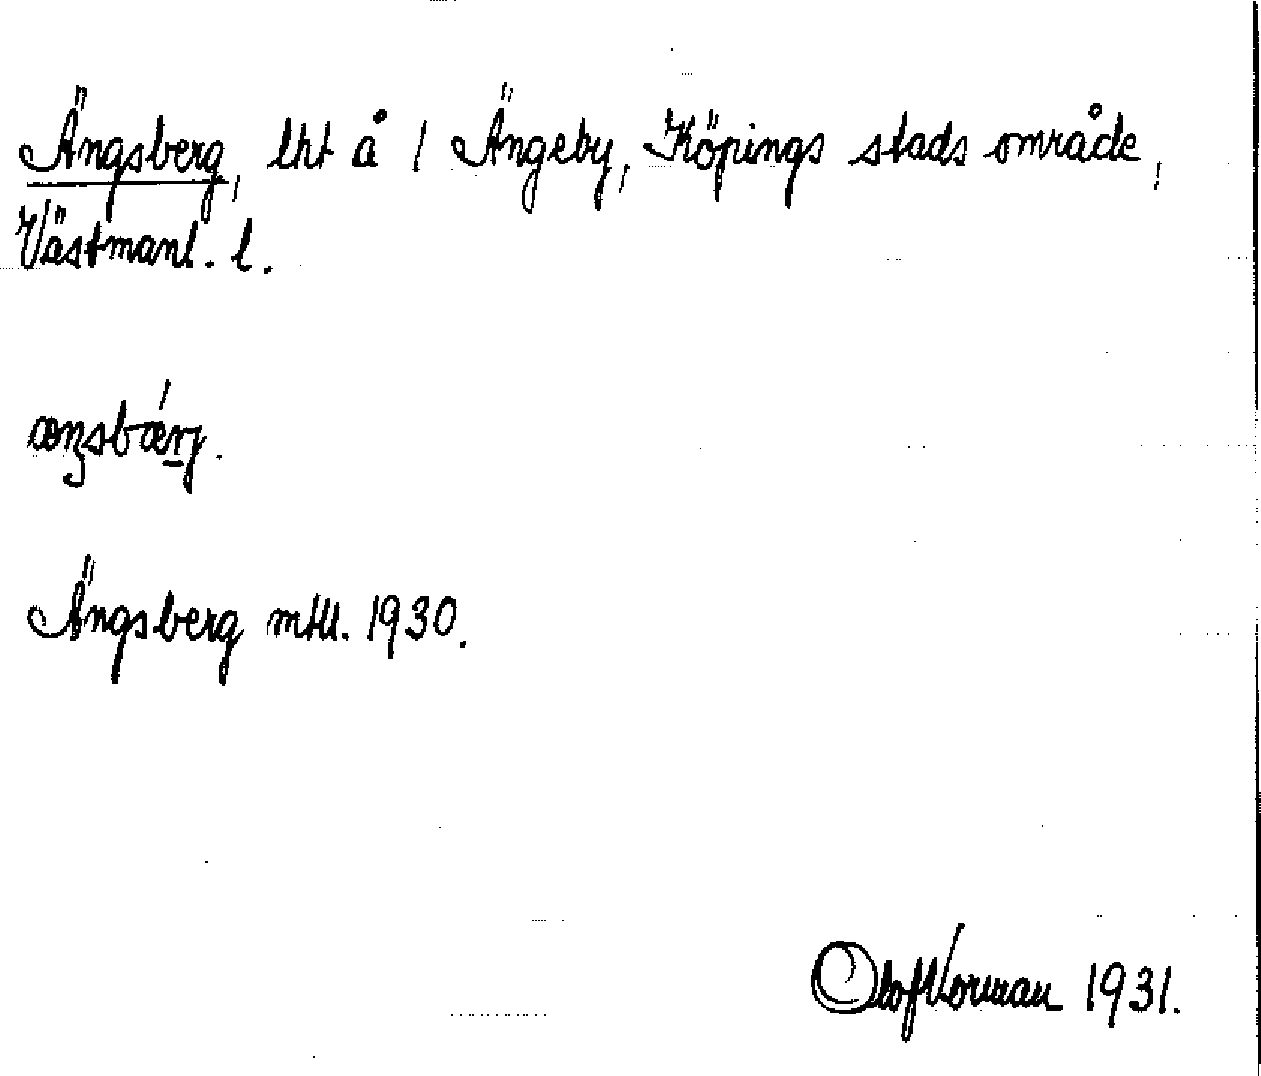 Ängsberg, lht å 1 Ängeby, Köpings stads område,
Västmanl. l.
æŋsbǽrj.
Ängsberg mtll. 1930.
Olof Norman 1931.